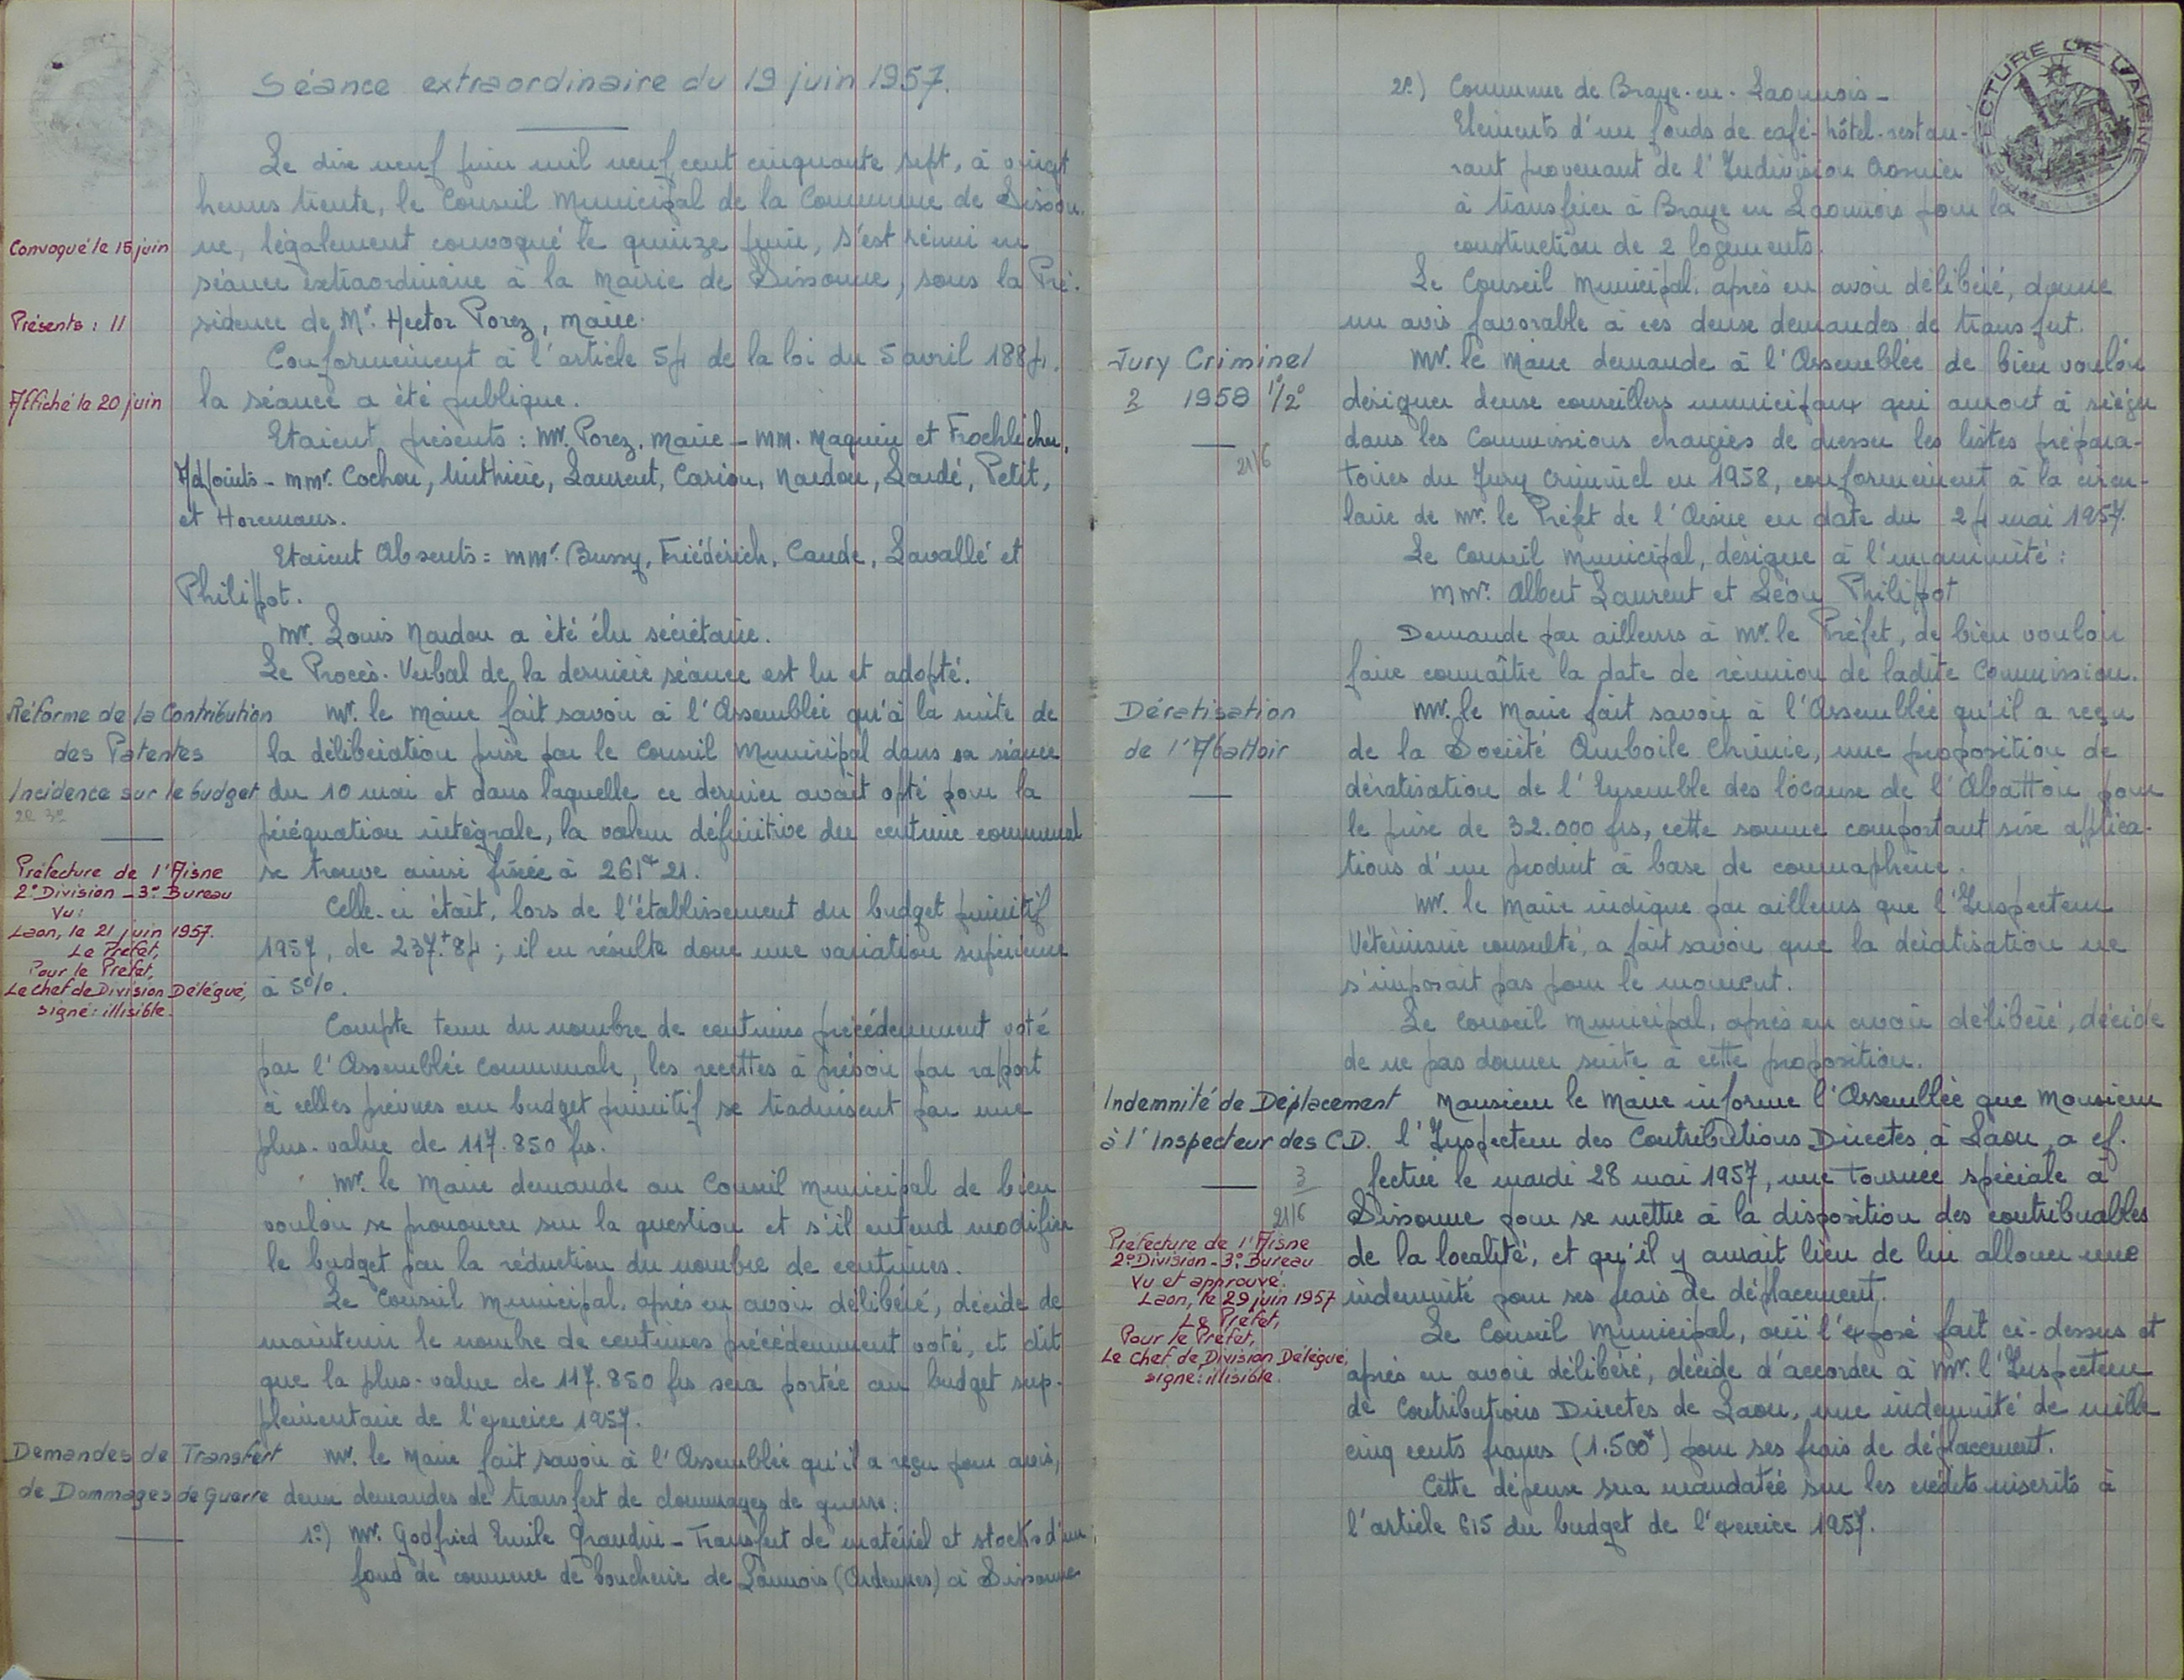 Séance extraordinaire du 19 juin 1957.
Le dix neuf juin mil neuf cent cinquante sept, à vingt
heures trente, le Conseil Municipal de la Commune de Sisson-
Convoqué le 15 juin
ne, légalement convoqué le quinze juin, s'est réuni en
séance extraordinaire à la Mairie de Sissonne, sous la Pré-
Présents : 11
sidence de Mr. Hector Porez, Maire.
Conformément à l'article 54 de la loi du 5 avril 1884,
Affiché le 20 juin
la séance a été publique.
Etaient présents : Mr. Porez, Maire - MM. Maquin et Froehlicher,
Adjoints - MMr. Cochon, Laurent, Cariou, Nardou, Lardé, Petit,
et Horemans.
Etaient Absents = MMr. Bussy, Friédérich, Caude, Lavallé et
Philipot.
Mr. Louis Nardou a été élu sécrétaire.
Le Procès-Verbal de la dernière séance est lu et adopté.
Réforme de la Contribution
des Patentes
Incidence sur le budget
Mr. le Maire fait savoir à l'Assemblée qu'à la suite de
la délibération prise par le Conseil Municipal dans sa séance
du 10 mai et dans laquelle ce dernier avait opté pour la
péréquation intégrale, la valeur définitive du centime communal
se trouve ainsi fixée à 261f21.
Préfecture de l'Aisne
2e Division - 3e Bureau
Vu :
Laon, le 21 juin 1957.
Le Préfet,
Pour le Préfet,
Le Chef de Division Délégué,
signé : illisible.
Celle-ci était, lors de l'établissement du budget primitif
1957, de 237f84 ; il en résulte donc une variation supérieure
à 5%.
Compte tenu du nombre de centimes précédemment voté
par l'Assemblée Communale, les recettes à prévoir par raport
à celles prévues au budget primitif se traduisent par une
plus-value de 117.850 frs.
Mr. le Maire demande au Conseil Municipal de bien
vouloir se prononcer sur la question et s'il entend modifier
le budget par la réduction du nombre de centimes.
Le Conseil Municipal, après en avoir délibéré, décide de
maintenir le nombre de centimes précédemment voté, et dit
que la plus-value de 117.850 frs sera portée au budget sup-
plémentaire de l'exercice 1957.
Demandes de Transfert
de Dommages de Guerre
Mr. le Maire fait savoir à l'Assemblée qu'il a reçu pour avis,
deux demandes de transfert de dommages de guerre :
1°) Mr. Godfried Emile Graudin - Transfert de matériel et stocks d'un
fond de commerce de boucherie de (Ardennes) à Sissonne
2e) Commune de Braye-en-Laonnois -
Eléments d'un fonds de café-hôtel-restau-
rant provenant de l'Indivision
à transférer à Braye en Laonnois pour la
construction de 2 logements.
PRÉFECTURE DE L'AISNE
Le Conseil Municipal, après en avoir délibéré, donne
un avis favorable à ces deux demandes de transfert.
Jury Criminel
2 1958 1°/2°
21/6
Mr. le Maire demande à l'Assemblée de bien vouloir
désigner deux conseillers municipaux qui auront à siéger
dans les Commissions chargées de dresser les listes prépara-
toires du Jury criminel en 1958, conformément à la circu-
laire de Mr. le Préfet de l'Aisne en date du 24 mai 1957.
Le Conseil Municipal, désigne à l'unanimité :
MMr. Albert Laurent et Léon Philipot
Demande par ailleurs à Mr. le Préfet, de bien vouloir
faire connaître la date de réunion de ladite Commission.
Dératisation
de l'Abattoir
Mr. le Maire fait savoir à l'Assemblée qu'il a reçu
de la Société Amboile Chimie, une proposition de
dératisation de l'Ensemble des locaux de l'Abattoir pour
le prix de 32.000 frs, cette somme comportant six applica-
tions d'un produit à base de coumaphène.
Mr. le Maire indique par ailleurs que l'Inspecteur
Vétérinaire consulté, a fait savoir que la dératisation ne
s'imposait pas pour le moment.
Le Conseil Municipal, après en avoir délibéré, décide
de ne pas donner suite à cette proposition.
Indemnité de Déplacement
à l'Inspecteur des C.D.
3
21/6
Monsieur le Maire informe l'Assemblée que Monsieur
l'Inspecteur des Contributions Directes à Laon, a ef-
fectué le mardi 28 mai 1957, une tournée spéciale à
Sissonne pour se mettre à la disposition des contribuables
de la localité, et qu'il y aurait lieu de lui allouer une
indemnité pour ses frais de déplacement.
Préfecture de l'Aisne
2e Division - 3e Bureau
Vu et approuvé.
Laon, le 29 juin 1957
Le Préfet,
Pour le Préfet,
Le Chef de Division Délégué,
signé : illisible.
Le Conseil Municipal, ouï l'exposé fait ci-dessus et
après en avoir délibéré, décide d'accorder à Mr. l'Inspecteur
de Contributions Directes de Laon, une indemnité de mille
cinq cents francs (1.500f) pour ses frais de déplacement.
Cette dépense sera mandatée sur les crédits inscrits à
l'article 615 du budget de l'exercice 1957.